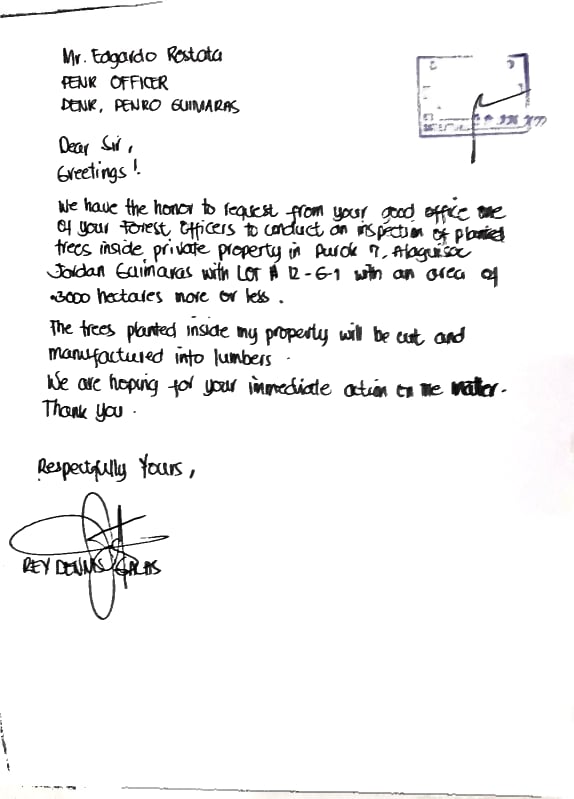 Mr. Edgardo Rostata
PENR OFFICER
DENR, PENRO GUIMARAS
Dear Sir,
Greetings!
We have the honor to request from your good office one
of your Forest Officers to conduct an inspection of planted
trees inside private property in Purok 7, Alaguisoc
Jordan Guimaras with Lot # 12-G-1 with an area of
.3000 hectares more or less.
The trees planted inside my property will be cut and
manufactured into lumbers.
We are hoping for your immediate action on the matter.
Thank you.
Respectfully Yours,
REY DENNIS GALAS